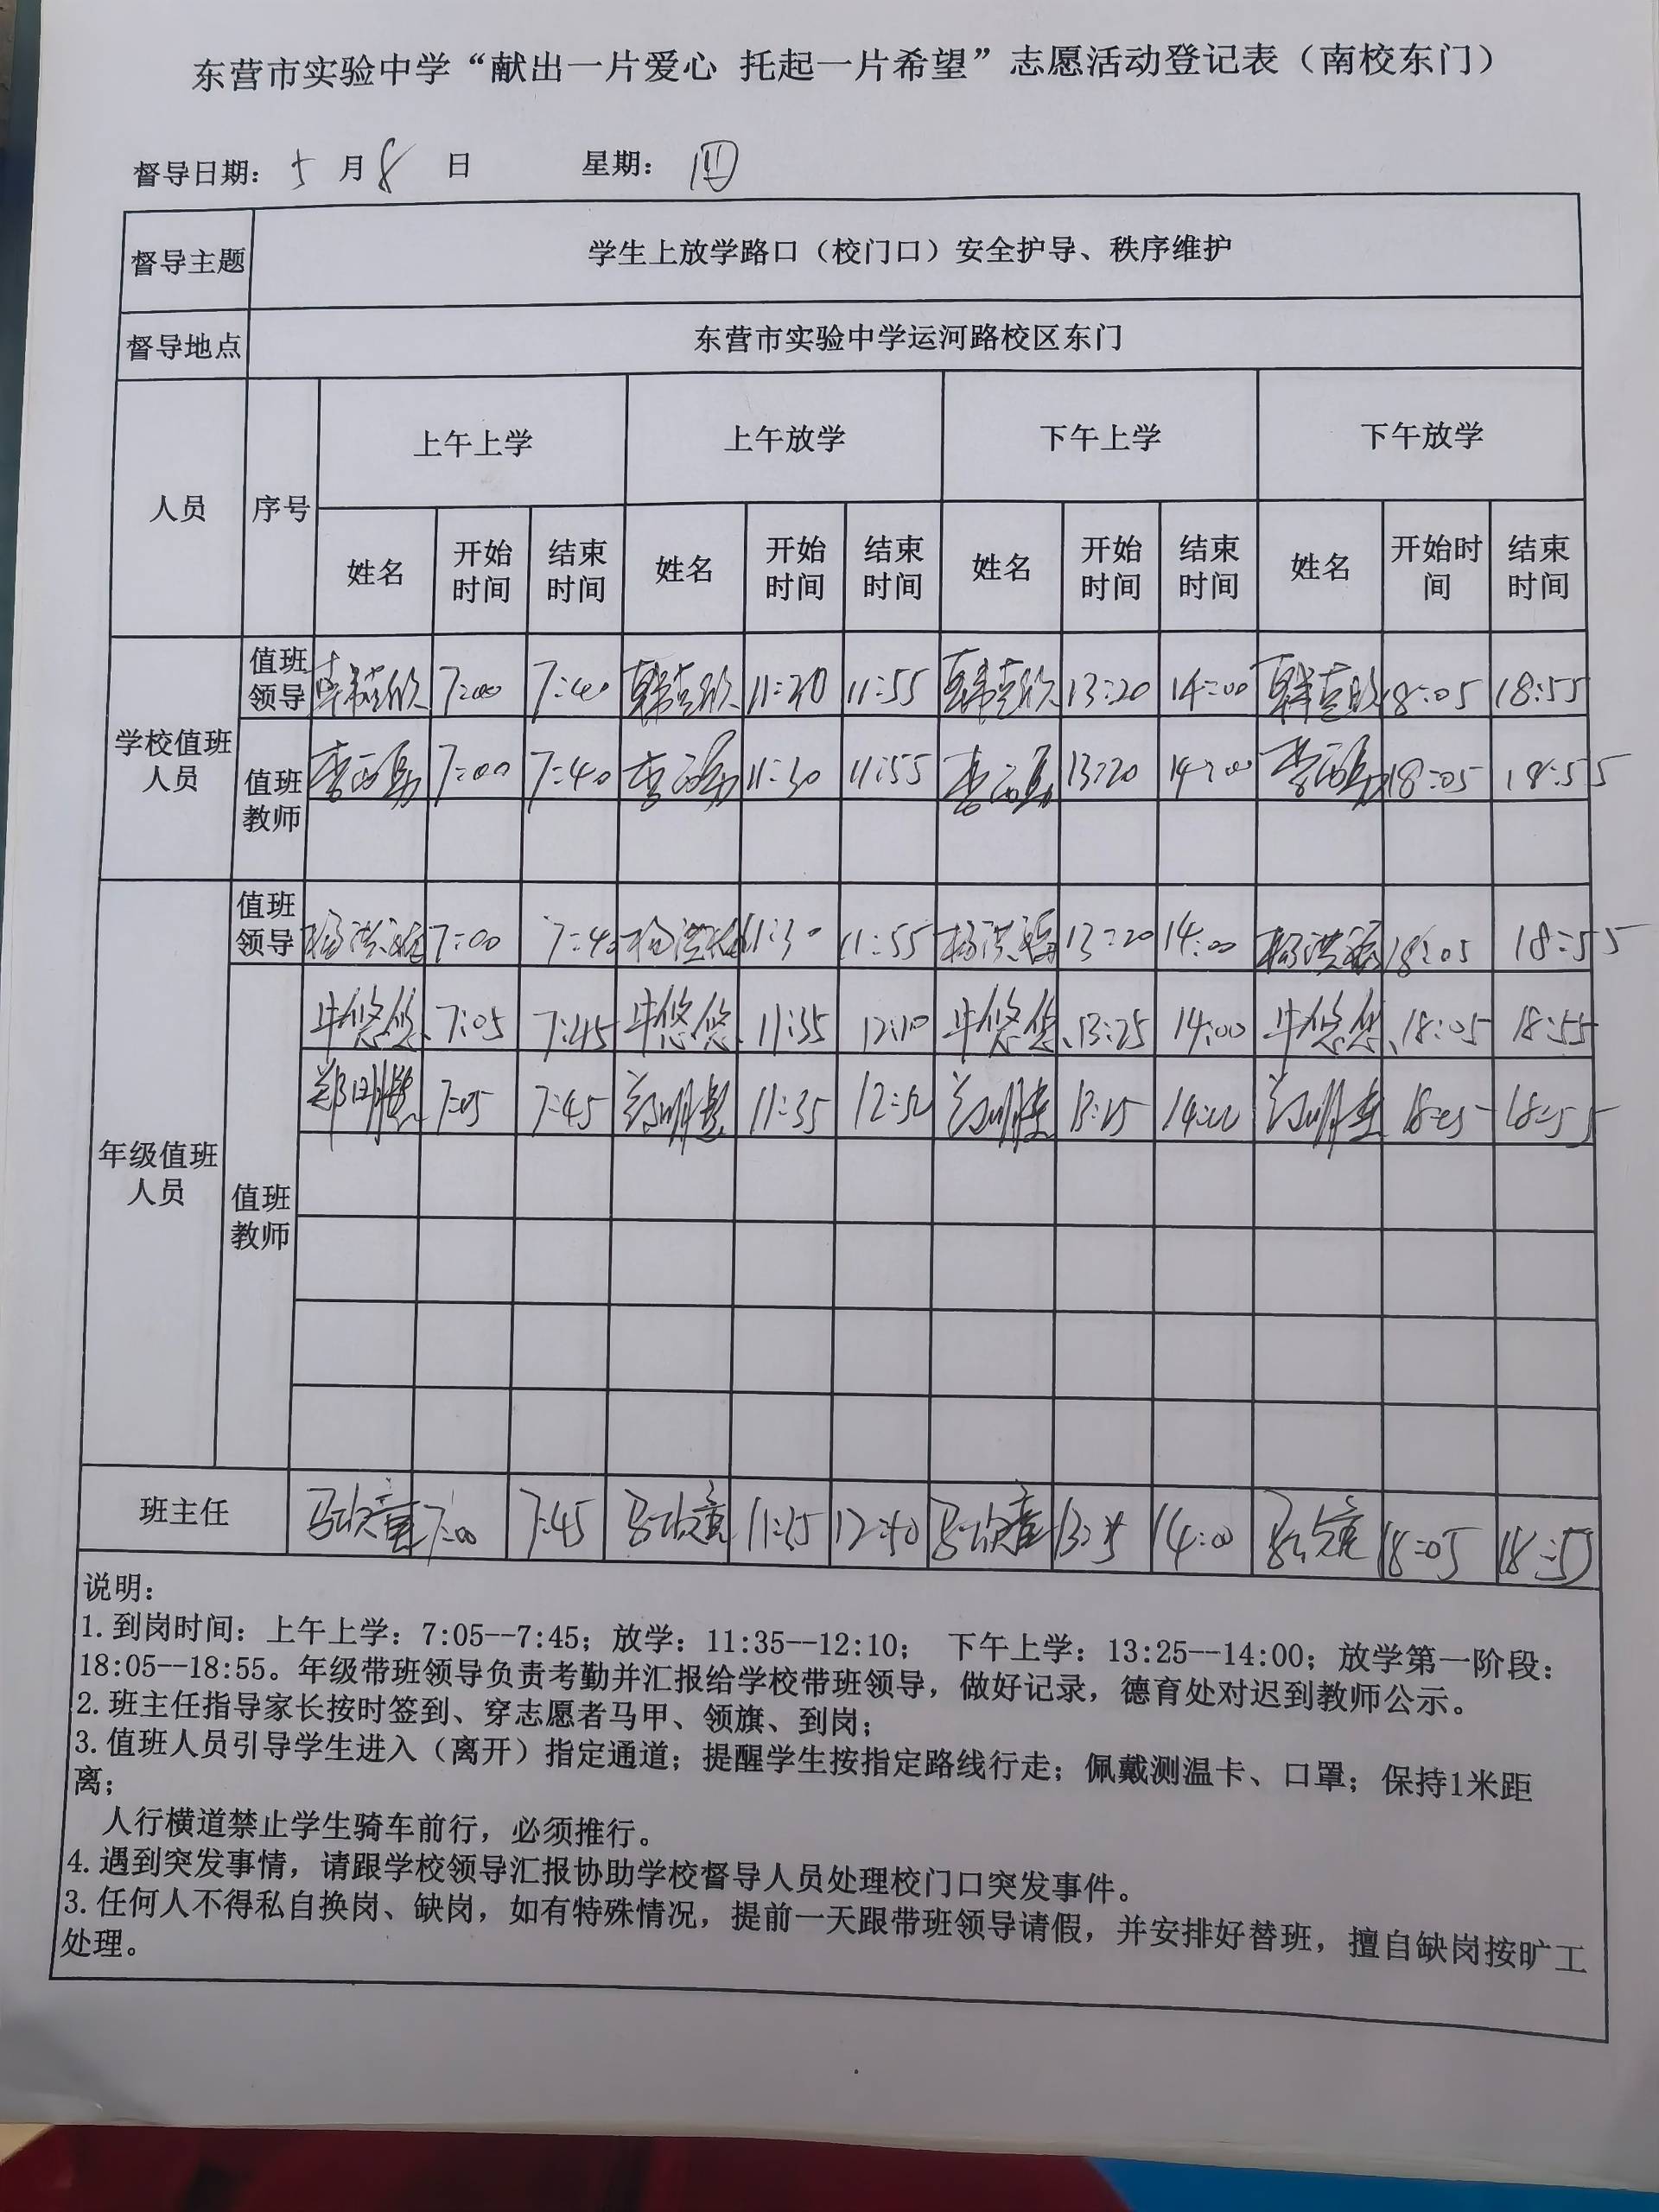 东营市实验中学“献出一片爱心 托起一片希望”志愿活动登记表（南校东门）
督导日期： 5 月 8 日 星期： 四
督导主题 学生上放学路口（校门口）安全护导、秩序维护
督导地点 东营市实验中学运河路校区东门
人员 序号 上午上学 上午放学 下午上学 下午放学
姓名 开始时间 结束时间 姓名 开始时间 结束时间 姓名 开始时间 结束时间 姓名 开始时间 结束时间
学校值班人员
值班领导 7:00 7:40 11:30 11:55 13:20 14:00 18:05 18:55
值班教师 7:00 7:40 11:30 11:55 13:20 14:00 18:05 18:55
年级值班人员
值班领导 7:00 7:40 11:30 11:55 13:20 14:00 18:05 18:55
值班教师
牛悠悠 7:05 7:45 牛悠悠 11:35 12:10 牛悠悠 13:25 14:00 牛悠悠 18:05 18:55
7:05 7:45 11:35 13:25 14:00 18:05 18:55
班主任 7:00 7:45 14:00 18:05 18:55
说明：
1.到岗时间：上午上学：7:05--7:45；放学：11:35--12:10； 下午上学：13:25--14:00；放学第一阶段：
18:05--18:55。年级带班领导负责考勤并汇报给学校带班领导，做好记录，德育处对迟到教师公示。
2.班主任指导家长按时签到、穿志愿者马甲、领旗、到岗；
3.值班人员引导学生进入（离开）指定通道；提醒学生按指定路线行走；佩戴测温卡、口罩；保持1米距
离；
人行横道禁止学生骑车前行，必须推行。
4.遇到突发事情，请跟学校领导汇报协助学校督导人员处理校门口突发事件。
3.任何人不得私自换岗、缺岗，如有特殊情况，提前一天跟带班领导请假，并安排好替班，擅自缺岗按旷工
处理。